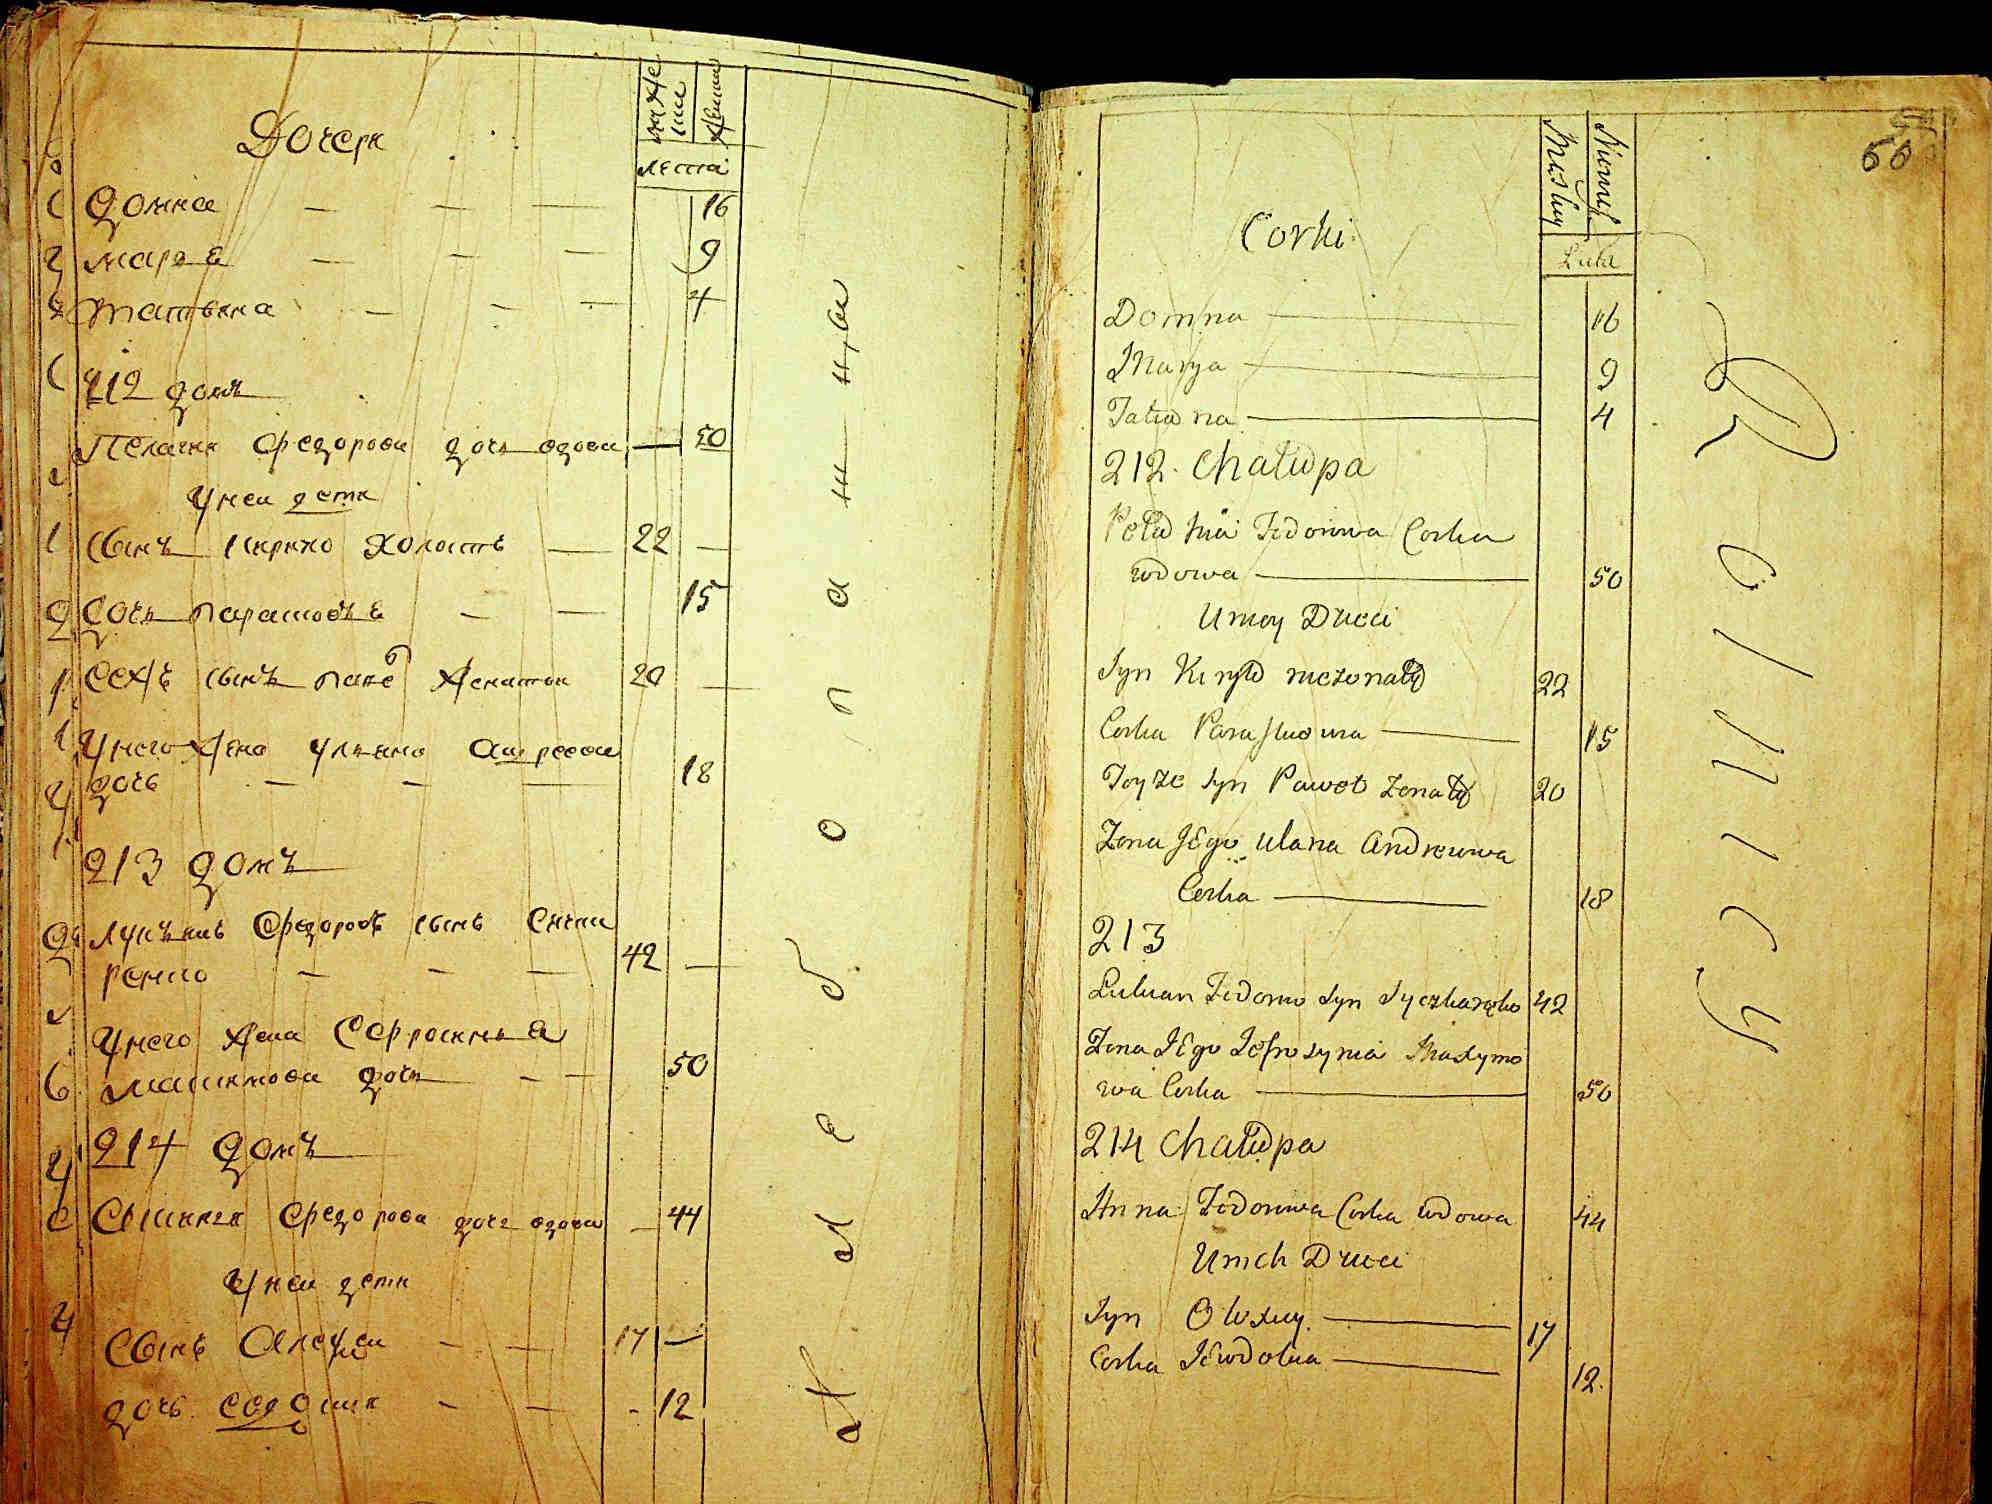 Дочери
мужеска
женска
лета
Домна — — — 16
Марѳа — — — 9
Татьяна — — — 4
212 домъ
Пелагия Федорова дочь вдова — 50
У неи дети
Сынъ Кирило холостъ — 22 —
Дочь Парасковъя — — 15
Сехъ сынъ Павел женатъ 20 —
У него жена Ульяна Андреева
дочь — — — 18
213 домъ
Лукъянъ Федоровъ сынъ Сычка
ренко — — — 42 —
У него жена Ефросинья
Максимова дочь — — 50
214 домъ
Федорова дочь вдова — 44
У неи дети
Сынъ Алексеи — — 17 —
дочь Евдокия — — - 12
х л е б о п а ш ц ы
60
Męskiey
Niewieś.
Lata
Corki
Domna — 16
Marya — 9
Tatiana — 4
212. Chałupa
Pełahia Fedorowa Corka
wdowa — 50
U niey Dzieci
Syn Kiryło nieżonaty 22
Corka Paraskiowia — 15
Teyże Syn Paweł żonaty 20
Żona Jego Ulana Andreiowa
Corka — 18
213
Lukian Fedorow Syn Syczkarenko 42
Żona Jego Jefrosynia Maxymo
wa Corka — 50
214 Chałupa
Anna Fedorowa Corka wdowa 44
U nich Dzieci
Syn Olexiey — 17
Corka Jewdokia — 12.
R o l n i c y